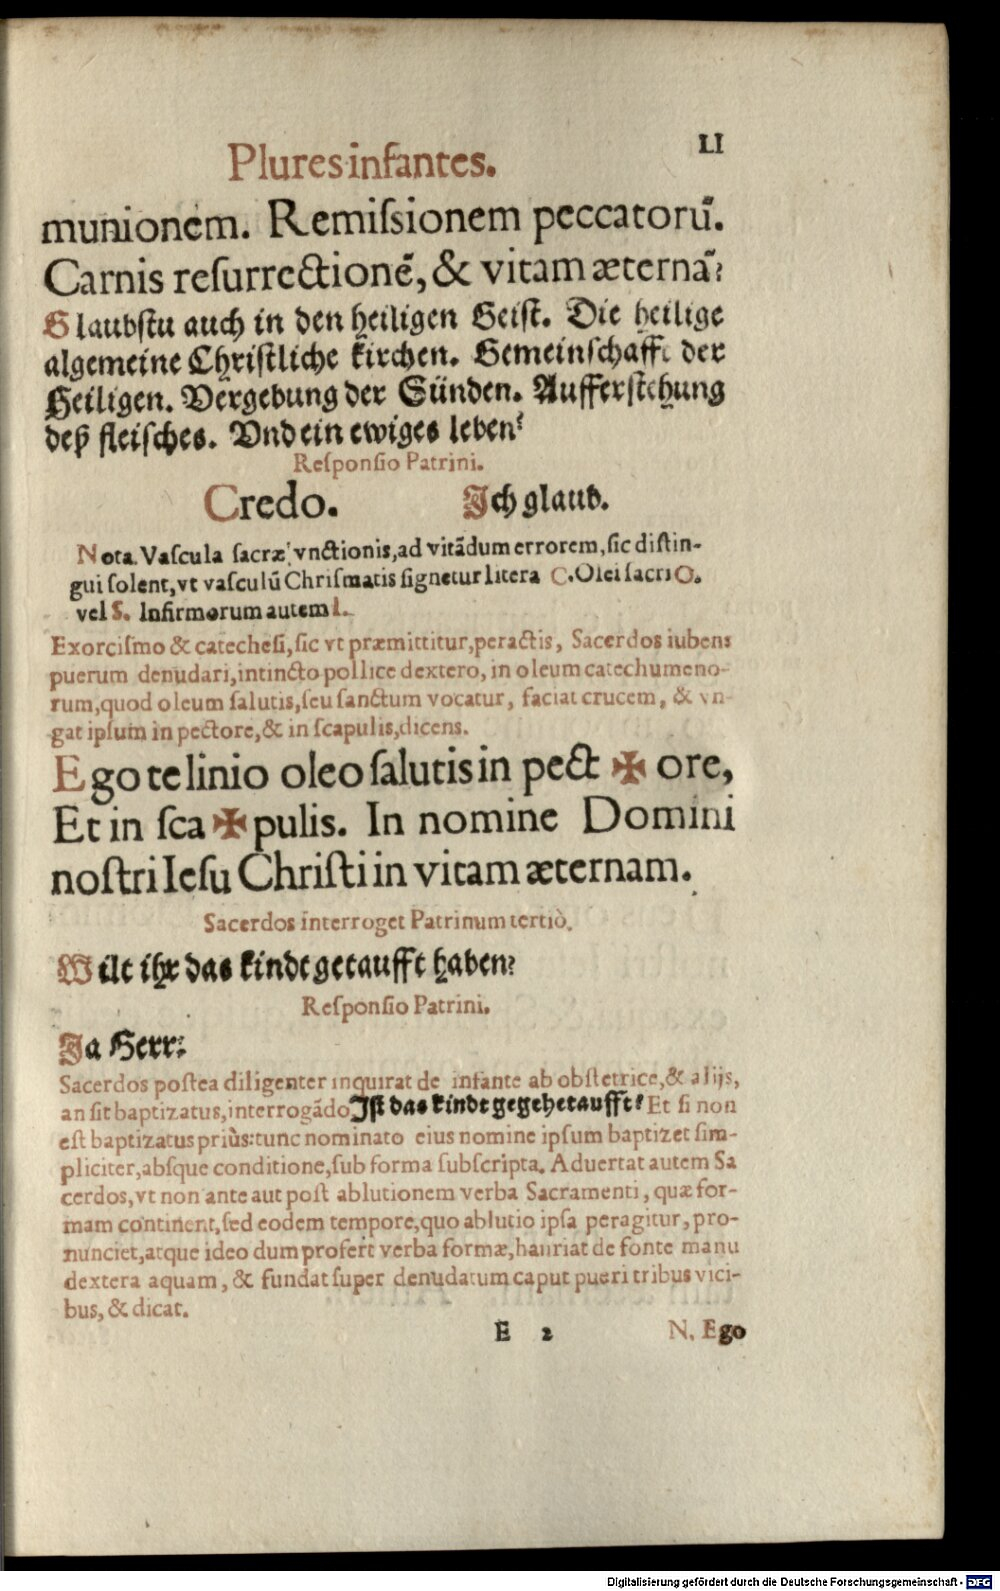 LI
Plures infantes.
munionem. Remiſsionem peccatorū.
Carnis reſurrectionē, & vitam æternā?
Glaubſtu auch in den heiligen Geiſt. Die heilige
algemeine Chriſtliche kirchen. Gemeinſchafft der
Heiligen. Vergebung der Sünden. Aufferſtehung
deß fleiſches. Vnd ein ewiges leben?
Reſponſio Patrini.
Credo. Ich glaub.
Nota. Vaſcula ſacræ vnctionis, ad vitādum errorem, ſic diſtin-
gui ſolent, vt vaſculū Chriſmatis ſignetur litera C. Olei ſacri O.
vel S. Infirmorum autem I.
Exorciſmo & catecheſi, ſic vt præmittitur, peractis, Sacerdos iubens
puerum denudari, intincto pollice dextero, in oleum catechumeno-
rum, quod oleum ſalutis, ſeu ſanctum vocatur, faciat crucem, & vn-
gat ipſum in pectore, & in ſcapulis, dicens.
Ego te linio oleo ſalutis in pect ✠ ore,
Et in ſca ✠ pulis. In nomine Domini
noſtri Ieſu Chriſti in vitam æternam.
Sacerdos interroget Patrinum tertiò.
Wilt ihr das kindt getaufft haben?
Reſponſio Patrini.
Ja Herr:
Sacerdos poſtea diligenter inquirat de infante ab obſtetrice, & alijs,
an ſit baptizatus, interrogādo Iſt das kindt gegehetaufft? Et ſi non
eſt baptizatus priùs: tunc nominato eius nomine ipſum baptizet ſim-
pliciter, abſque conditione, ſub forma ſubſcripta. Aduertat autem Sa
cerdos, vt non ante aut poſt ablutionem verba Sacramenti, quæ for-
mam continent, ſed eodem tempore, quo ablutio ipſa peragitur, pro-
nunciet, atque ideo dum profert verba formæ, hauriat de fonte manu
dextera aquam, & fundat ſuper denudatum caput pueri tribus vici-
bus, & dicat.
E 2 N. Ego
Digitalisierung gefördert durch die Deutsche Forschungsgemeinschaft - DFG